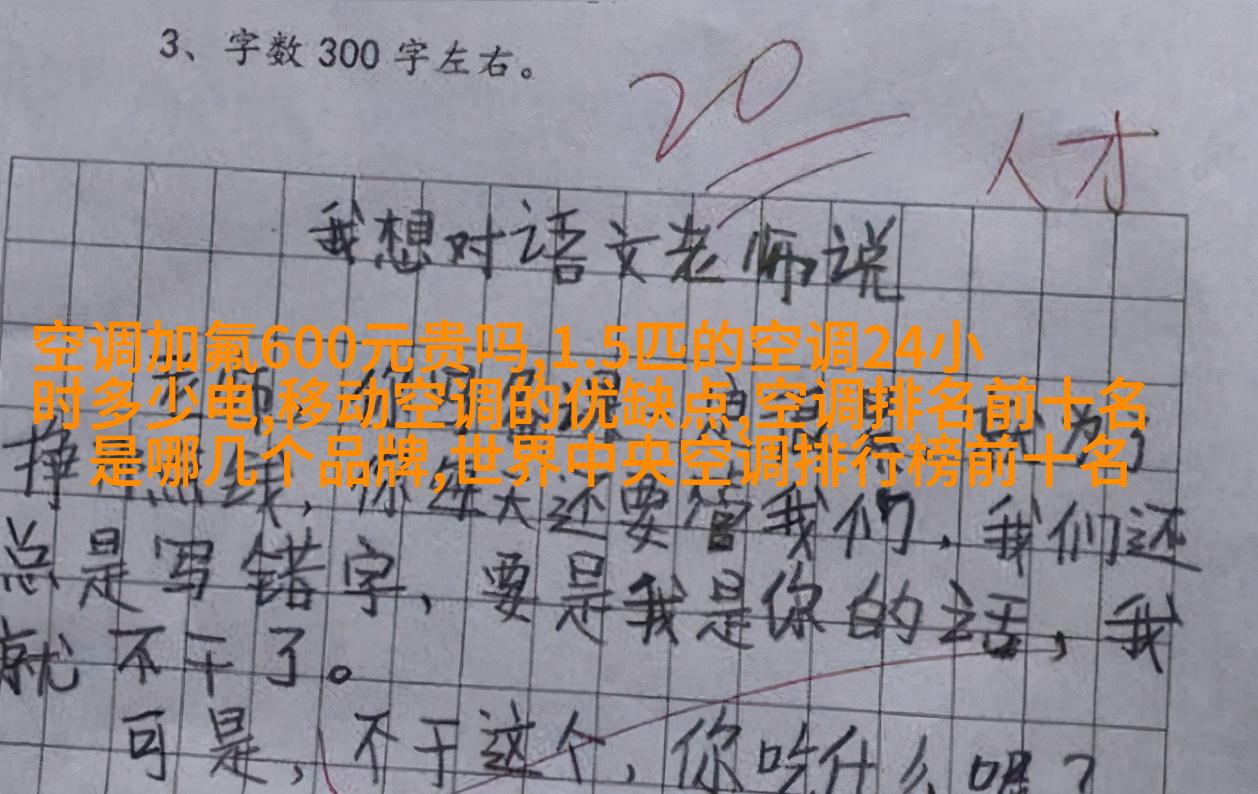 3、字数 300 字左右。
20
人才
我想对语文老师说
空调加氟600元贵吗,1.5匹的空调24小
时多少电,移动空调的优缺点,空调排名前十名
是哪几个品牌,世界中央空调排行榜前十名
挣 线，你每天还要管我们，我们还
总是写错字，要是我是你的话，我
就不干了。
可是，不干这个，你吃什么呢？